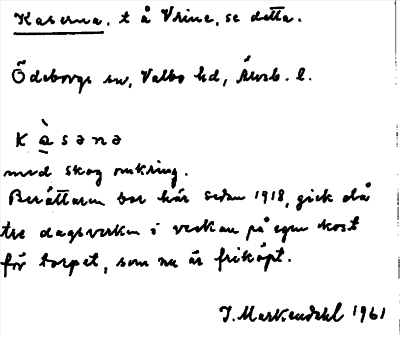 Kaserna, t å Vrine, se detta.
Ödeborgs sn, Valbo hd, Älvsb. l.
K à̱ s ə n ə
med skog omkring.
Berättaren bor här sedan 1918, gick då
tre dagsverken i veckan på egen kost
för torpet, som nu är friköpt.
J. Markendahl 1961